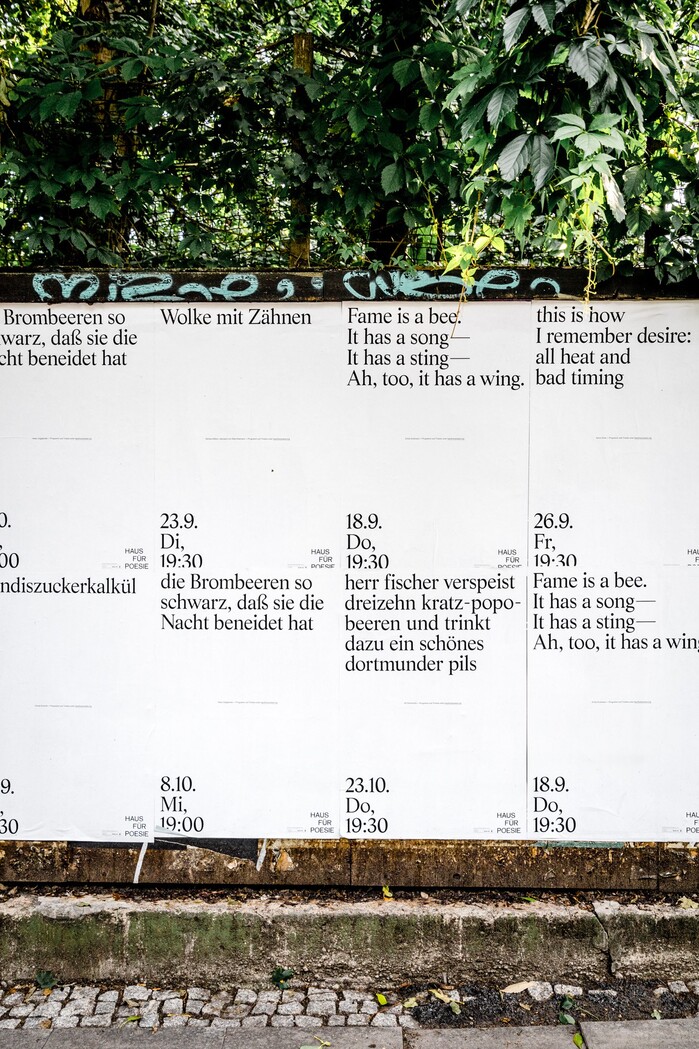 Brombeeren so
warz, daß sie die
cht beneidet hat
0.
00
HAUS
FÜR
POESIE
Wolke mit Zähnen
23.9.
Di,
19:30
HAUS
FÜR
POESIE
Fame is a bee.
It has a song—
It has a sting—
Ah, too, it has a wing.
18.9.
Do,
19:30
HAUS
FÜR
POESIE
this is how
I remember desire:
all heat and
bad timing
26.9.
Fr,
19:30
HAU
F
POE
ndiszuckerkalkül
9.
30
HAUS
FÜR
POESIE
die Brombeeren so
schwarz, daß sie die
Nacht beneidet hat
8.10.
Mi,
19:00
HAUS
FÜR
POESIE
herr fischer verspeist
dreizehn kratz-popo-
beeren und trinkt
dazu ein schönes
dortmunder pils
23.10.
Do,
19:30
HAUS
FÜR
POESIE
Fame is a bee.
It has a song—
It has a sting—
Ah, too, it has a wing
18.9.
Do,
19:30
HAU
F
POE